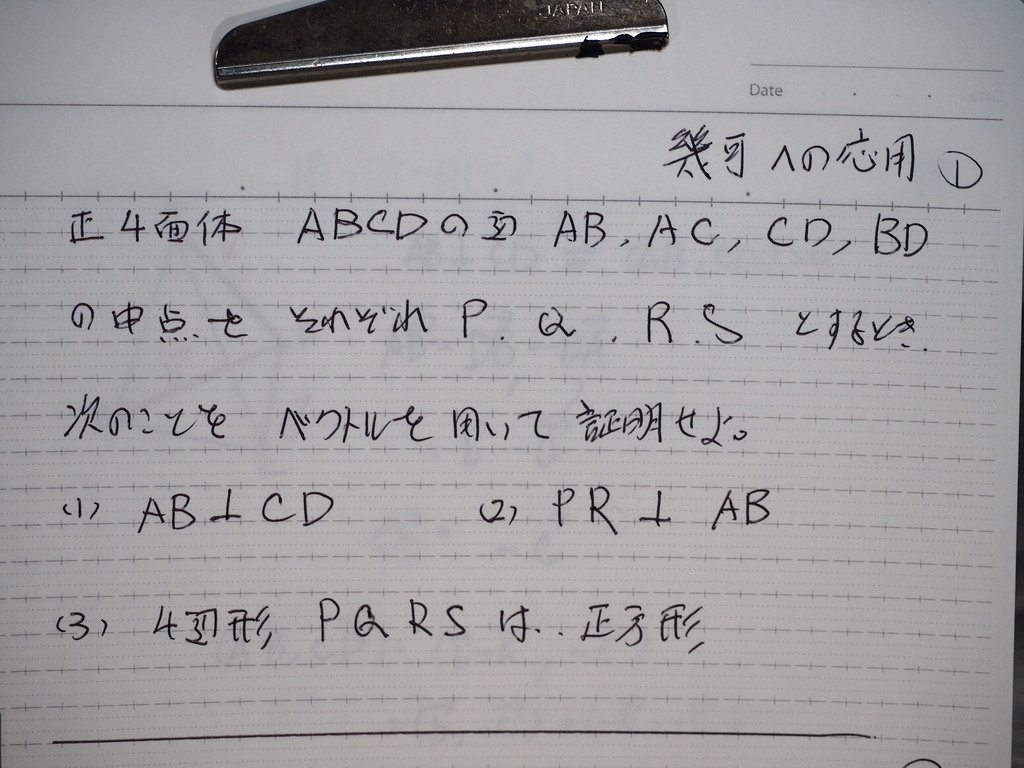 JAPAN
Date
幾可への応用 ①
正4面体 ABCDの辺 AB, AC, CD, BD
の中点を それぞれ P. Q. R. S とするとき
次のことを ベクトルを 用いて 証明せよ。
(1) AB⊥CD (2) PR ⊥ AB
(3) 4辺形 PQRSは. 正方形